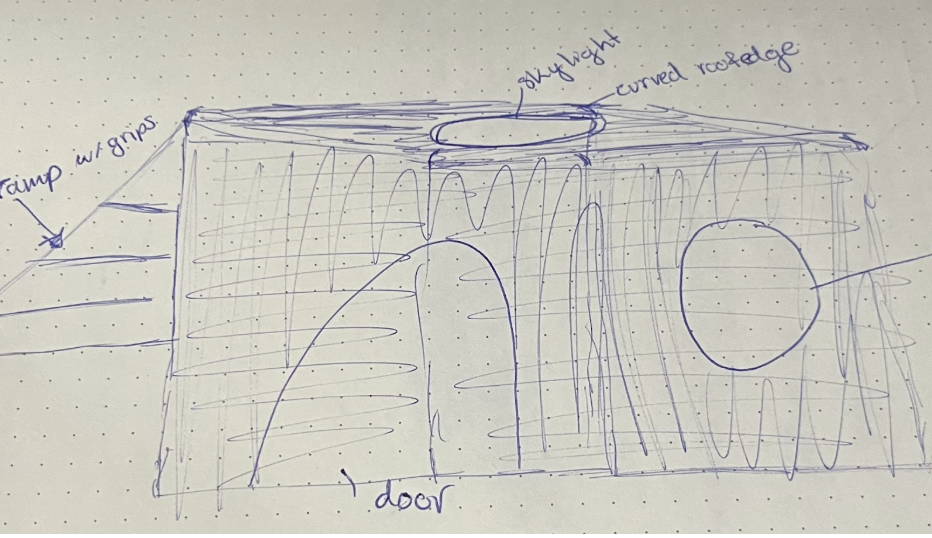 skylight
curved roofedge
ramp w/ grips
door